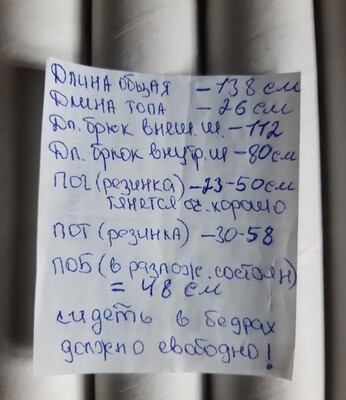 Длина общая - 138 см
Длина топа - 26 см
Дл. брюк внеш. ш. - 112
Дл. брюк внутр. ш - 80 см
ПОГ (резинка) - 23-50 см
тянется оч. хорошо
ПОТ (резинка) - 30-58
ПОБ (в разлож. состоян)
= 48 см
сидеть в бедрах
должно свободно!